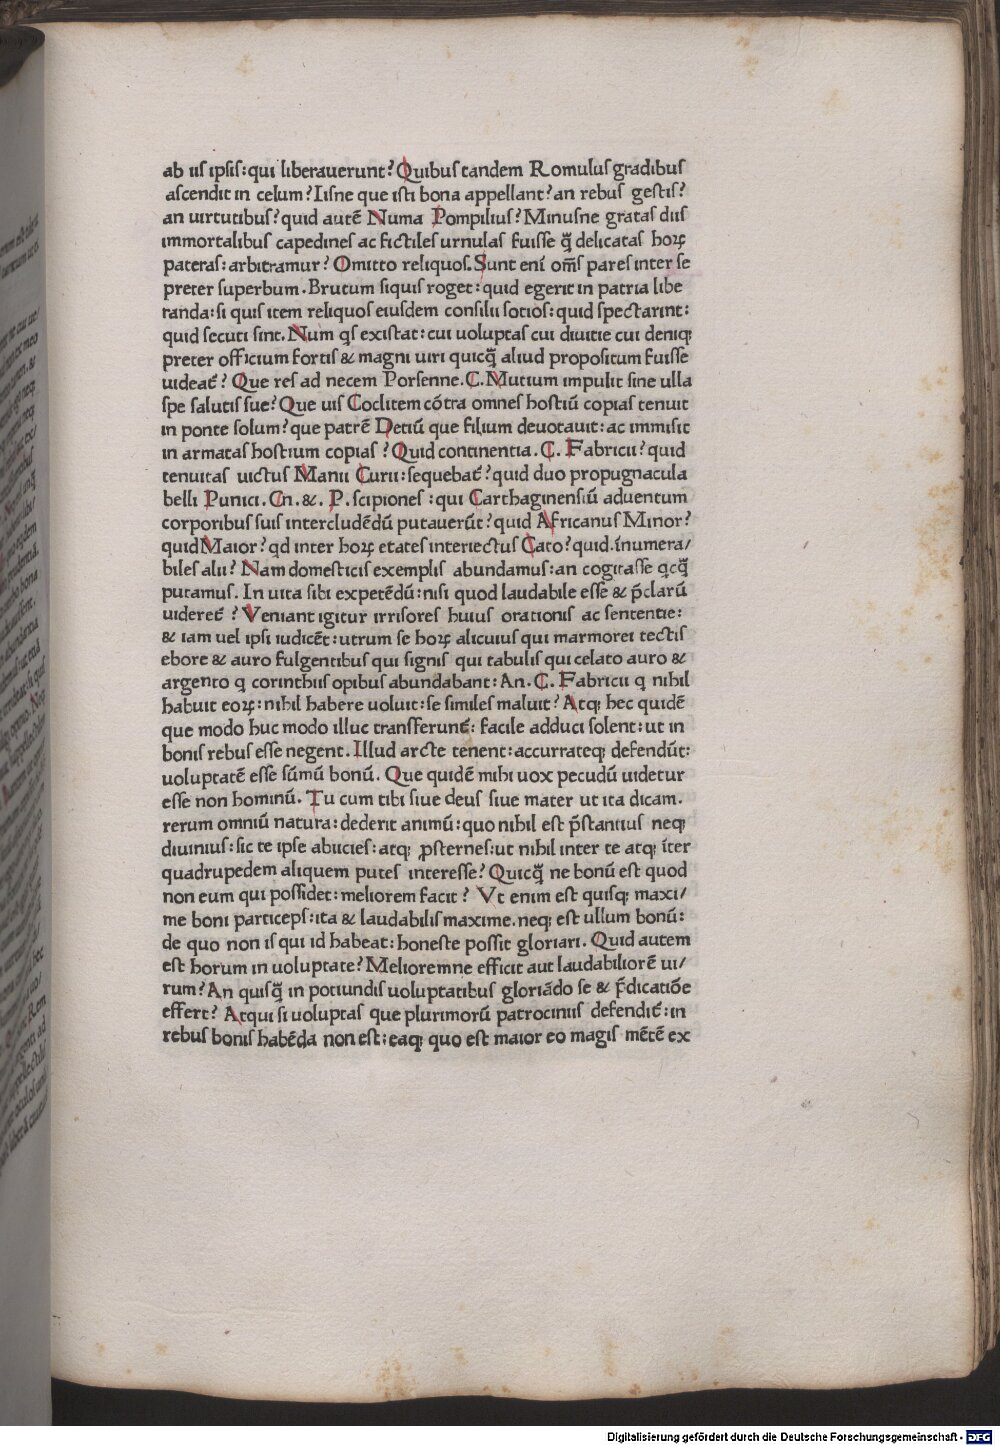 ab iis ipsis: qui liberauerunt? Quibus tandem Romulus gradibus
ascendit in celum? Iisne que isti bona appellant? an rebus gestis?
an uirtutibus? quid autẽ Numa Pompilius? Minusne gratas diis
immortalibus capedines ac fictiles urnulas fuisse q̃ delicatas hoꝝ
pateras: arbitramur? Omitto reliquos. Sunt eni om̃s pares inter se
preter superbum. Brutum siquis roget: quid egerit in patria libe
randa: si quis item reliquos eiusdem consilii socios: quid spectarint:
quid secuti sint. Num qs existat: cui uoluptas cui diuitie cui deniqꝫ
preter officium fortis & magni uiri quicq̃ aliud propositum fuisse
uideat̃? Que res ad necem Porsenne. C. Mutium impulit sine ulla
spe salutis sue? Que uis Coclitem cõtra omnes hostiũ copias tenuit
in ponte solum? que patrẽ Detiũ que filium deuotauit: ac immisit
in armatas hostium copias? Quid continentia. C. Fabricii? quid
tenuitas uictus Manii Curii: sequebat̃? quid duo propugnacula
belli Punici. Cn. &. P. scipiones: qui Carthaginensiũ aduentum
corporibus suis intercludẽdũ putauerũt? quid Africanus Minor?
quid Maior? qd inter hoꝝ etates interiectus Cato? quid. ĩnumera/
biles alii? Nam domesticis exemplis abundamus: an cogitasse qcq̃
putamus. In uita sibi expetẽdũ: nisi quod laudabile esse & p̃clarũ
uideret̃? Veniant igitur irrisores huius orationis ac sententie:
& iam uel ipsi iudicẽt: utrum se hoꝝ alicuius qui marmorei tectis
ebore & auro fulgentibus qui signis qui tabulis qui celato auro &
argento q corinthiis opibus abundabant: An. C. Fabricii q nihil
habuit eoꝝ: nihil habere uoluit: se similes maluit? Atqꝫ hec quidẽ
que modo huc modo illuc transferunt̃: facile adduci solent: ut in
bonis rebus esse negent. Illud arcte tenent: accurrateqꝫ defendũt:
uoluptatẽ esse sũmũ bonũ. Que quidẽ mihi uox pecudũ uidetur
esse non hominũ. Tu cum tibi siue deus siue mater ut ita dicam.
rerum omniũ natura: dederit animũ: quo nihil est p̃stantius neqꝫ
diuinius: sic te ipse abiicies: atqꝫ ꝓsternes: ut nihil inter te atqꝫ ĩter
quadrupedem aliquem putes interesse? Quicq̃ ne bonũ est quod
non eum qui possidet: meliorem facit? Vt enim est quisqꝫ maxi/
me boni particeps: ita & laudabilis maxime. neqꝫ est ullum bonũ:
de quo non is qui id habeat: honeste possit gloriari. Quid autem
est horum in uoluptate? Melioremne efficit aut laudabiliorẽ ui/
rum? An quisq̃ in potiundis uoluptatibus gloriãdo se & p̃dicatiõe
effert? Atqui si uoluptas que plurimorũ patrociniis defendit̃: in
rebus bonis habẽda non est: eaqꝫ quo est maior eo magis mẽtẽ ex
Digitalisierung gefördert durch die Deutsche Forschungsgemeinschaft - DFG